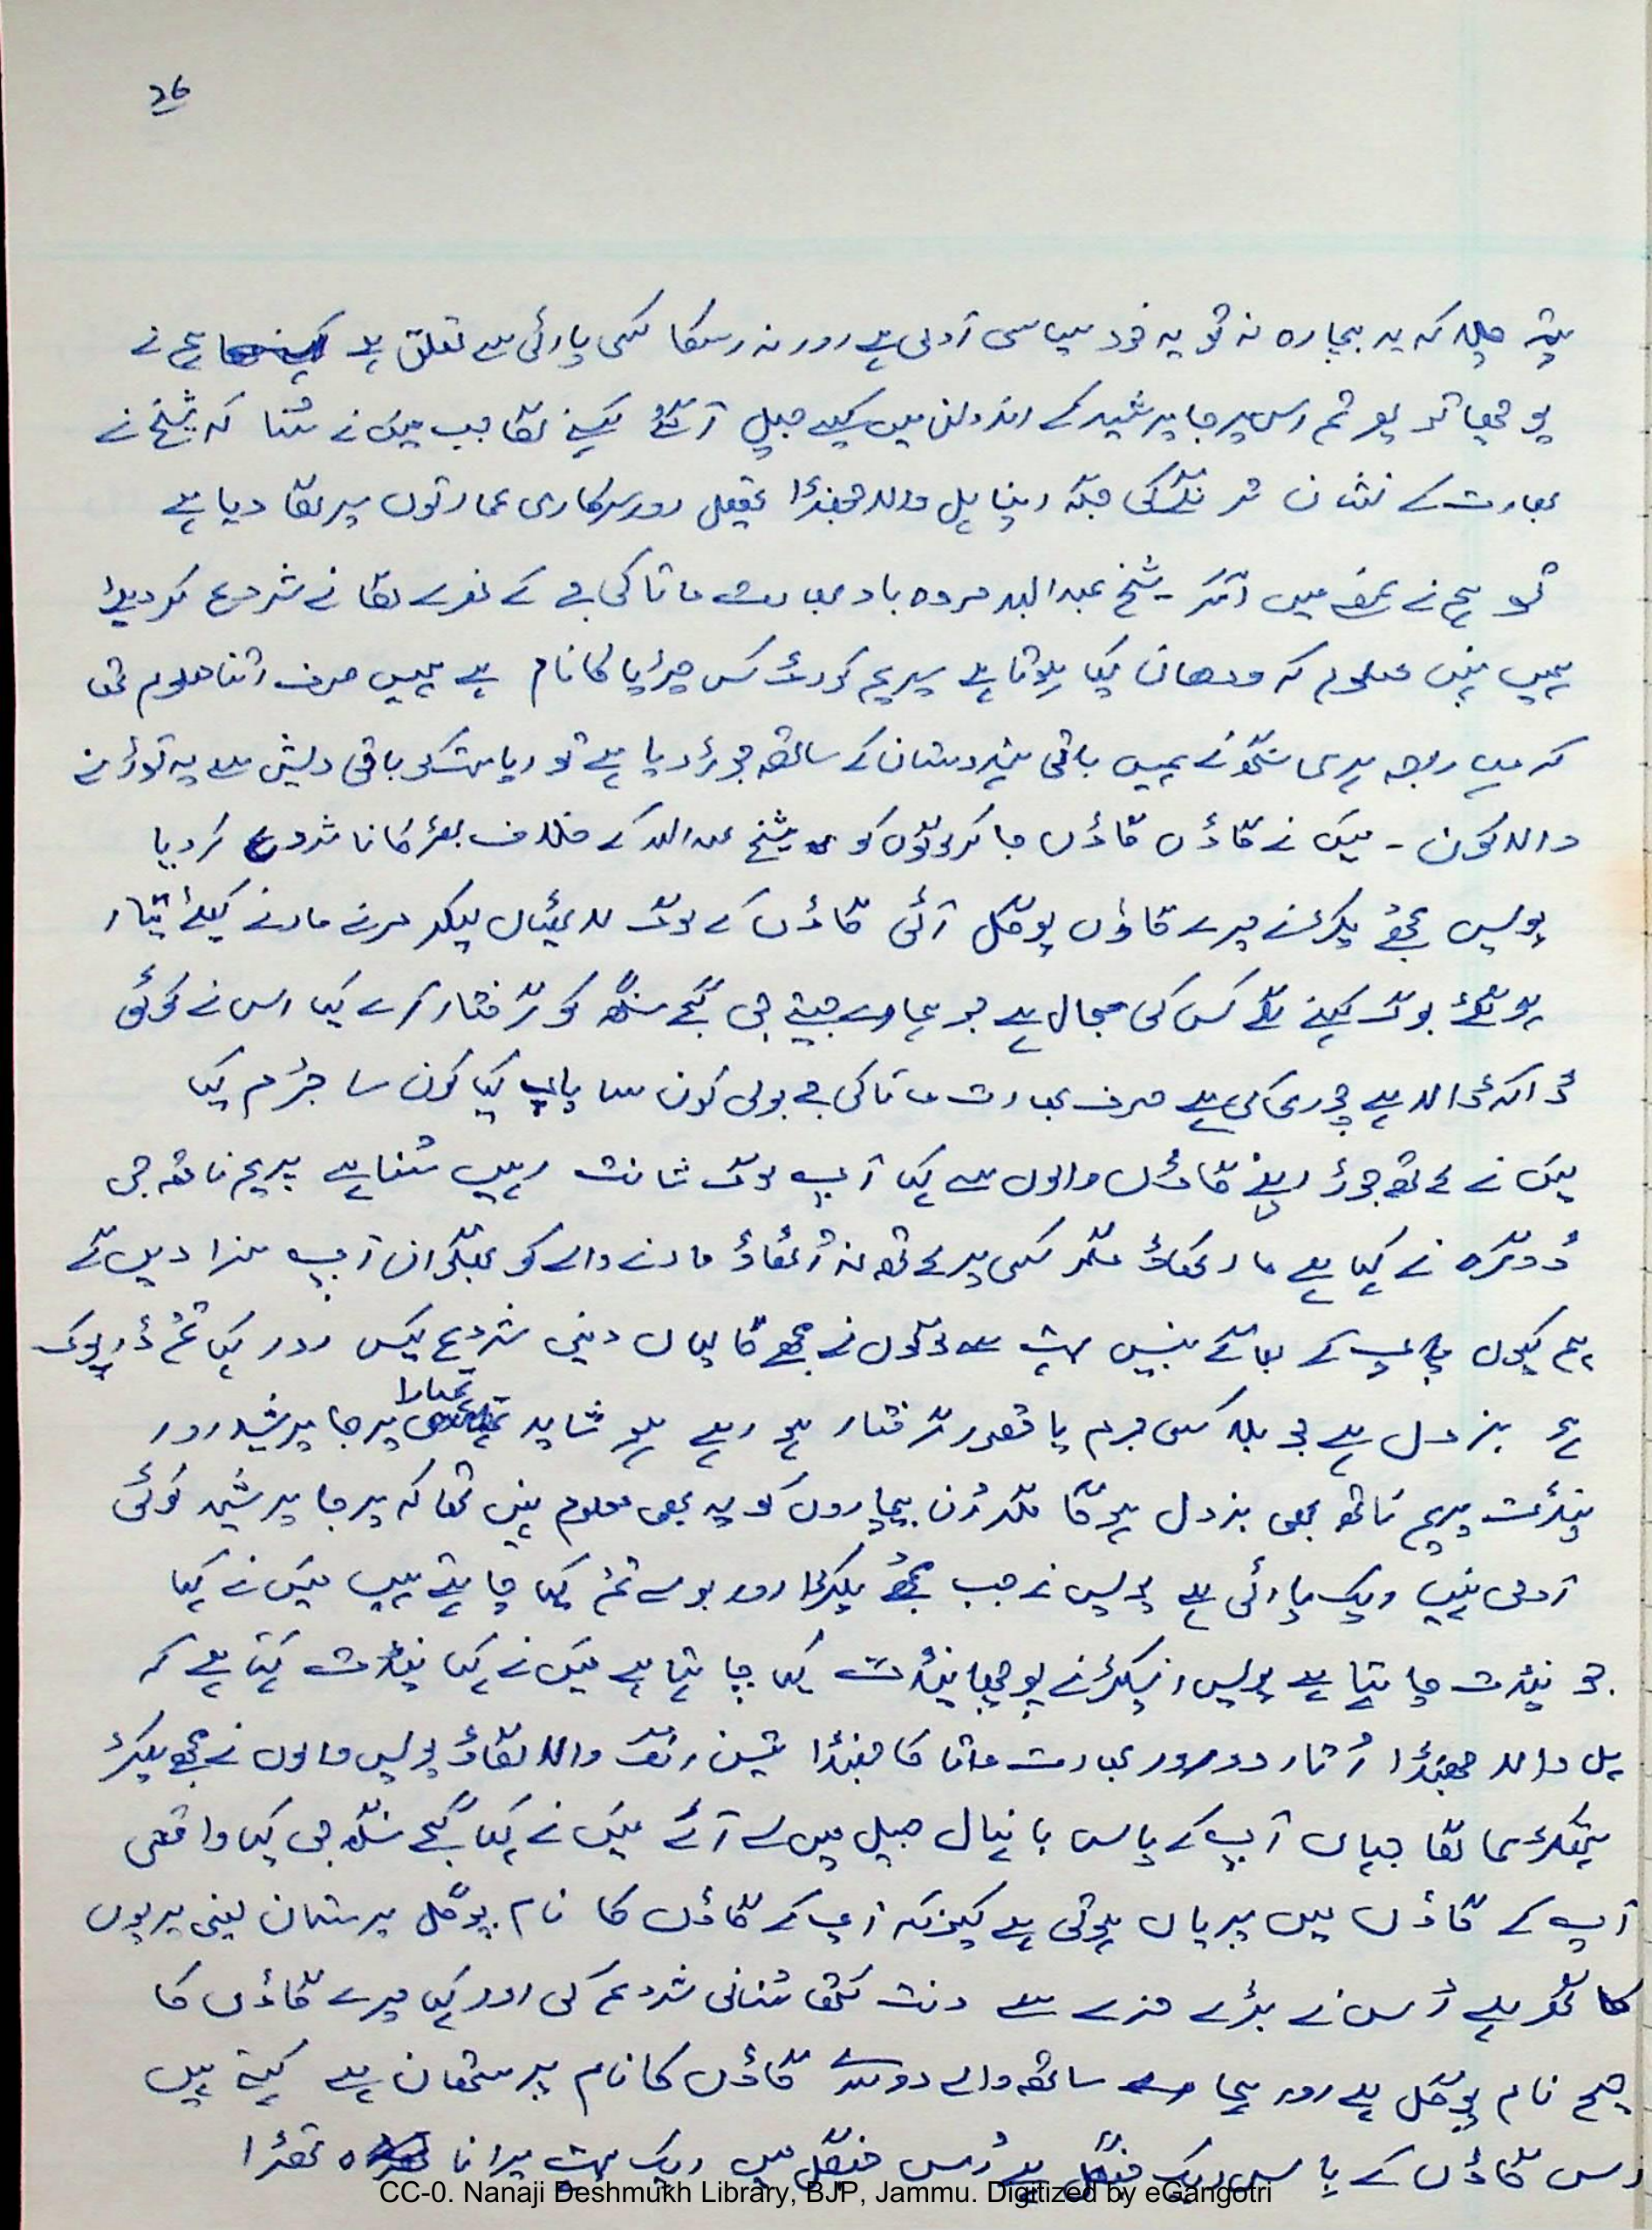 26
پتہ چلا کہ یہ بیچارہ نہ تو یہ خود سیاسی آدمی ہے اور نہ اسکا کسی پارٹی سے تعلق ہے ہم نے
پوچھا تو پھر تم اس پرجا پرشید کے اندولن میں کیسے جیل آ گئے کہنے لگا جب میں نے سُنا کہ شیخ نے
بھارت کے نشان ترنگے کی جگہ اپنا ہل والا جھنڈا تحصیل اور سرکاری عمارتوں پر لگا دیا ہے
تو ہم نے غصے میں آکر - شیخ عبداللہ مردہ باد بھارت ماتا کی جے کے نعرے لگانے شروع کر دیئے
ہمیں نہیں معلوم کہ ودھان کیا ہوتا ہے پریم کورٹ کس چڑیا کا نام ہے ہمیں صرف اتنا معلوم تھا
کہ مہاراجہ ہری سنگھ نے ہمیں باقی ہندوستان کے ساتھ جوڑ دیا ہے تو ریاست کو باقی دیش سے یہ توڑنے
والا کون - میں نے گاؤں گاؤں جا کر لوگوں کو شیخ عبداللہ کے خلاف بھڑکانا شروع کر دیا
پولیس مجھے پکڑنے میرے گاؤں پوگل آئی گاؤں کے لوگ لاٹھیاں لیکر مرنے مارنے کیلئے تیار
ہو گئے لوگ کہنے لگے کس کی مجال ہے جو ہمارے جیتے جی گجے سنگھ کو گرفتار کرے کیا اس نے کوئی
ڈاکہ ڈالا ہے چوری کی ہے صرف بھارت ماتا کی جے بولی کون سا پاپ کیا کون سا جُرم کیا
میں نے ہاتھ جوڑ اپنے گاؤں والوں سے کہا آپ لوگ شانت رہیں سُنا ہے پریم ناتھ جی
ڈوگرہ نے کہا ہے مار کھاؤ مگر کسی پر ہاتھ نہ اُٹھاؤ مارنے والے کو بھگوان آپ سزا دیں گے
ہم کیوں پاپ کے بھاگی بنیں بہت سے لوگوں نے مجھے گالیاں دینی شروع کیں اور کہا تُم ڈرپوک
ہو بزدل ہے جو بلا کسی جرم یا قصور گرفتار ہو رہے ہو شاید تمہارا پرجا پرشید اور
پنڈت پریم ناتھ بھی بزدل ہو گا مگر اُن بیچاروں کو یہ بھی معلوم نہیں تھا کہ پرجا پرشید کوئی
آدمی نہیں ایک پارٹی ہے پولیس نے جب مجھے پکڑا اور بولے تم کیا چاہتے ہیں میں نے کہا
جو پنڈت چاہتا ہے پولیس انسپکٹر نے پوچھا پنڈت کیا چاہتا ہے میں نے کہا پنڈت کہتا ہے کہ
ہل والا جھنڈا اُتار دو اور بھارت ماتا کا جھنڈا تین رنگ والا لگاؤ پولیس والوں نے مجھے پکڑ
ہتھکڑی لگا یہاں آپ کے پاس بانہال جیل میں لے آئے میں نے کہا گجے سنگھ جی کیا واقعی
آپ کے گاؤں میں پریاں ہوتی ہے کیونکہ آپ کے گاؤں کا نام پوگل پرستان یعنی پریوں
کا گھر ہے اُس نے بڑے مزے سے دنت کتھا سُنانی شروع کی اور کہا میرے گاؤں کا
صحیح نام پوگل ہے اور ہمارے ساتھ والے دوسرے گاؤں کا نام پرستھان ہے کہتے ہیں
اس گاؤں کے پاس ایک جنگل ہے اُس جنگل میں ایک بہت پرانا تھڑا
CC-0. Nanaji Deshmukh Library, BJP, Jammu. Digitized by eGangotri